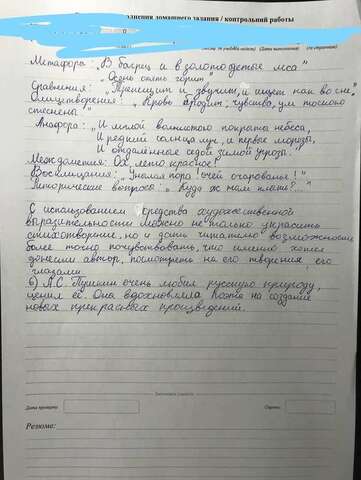 полнения домашнего задания / контрольной работы
Метафора: „В багрец и в золото одетые леса"
„Осень опять горит"
Сравнения: „Трепещит и звучит, и ищет как во сне"
Олицетворение: „Кровь бродит; чувства, ум тоскою
стеснены"
Анафора: „И мглой волнистою покрыты небеса,
И редкий солнца луч, и первые морозы,
И отдаленные седой зимой угрозы.
Междометия: Ох, лето красное!
Восклицания: „Унылая пора! очей очарованье!"
Риторические вопросы: „Куда ж нам плыть?"
С использованием средства художественной
выразительности можно не только украсить
стихотворение, но и дать читателю возможность
более точно почувствовать, что именно хотел
донести автор, посмотреть на его творения его
глазами.
6) А.С. Пушкин очень любил русскую природу,
ценил её. Она вдохновляла поэта на создание
новых прекрасных произведений.
Дата проверки
Оценка:
Резюме: